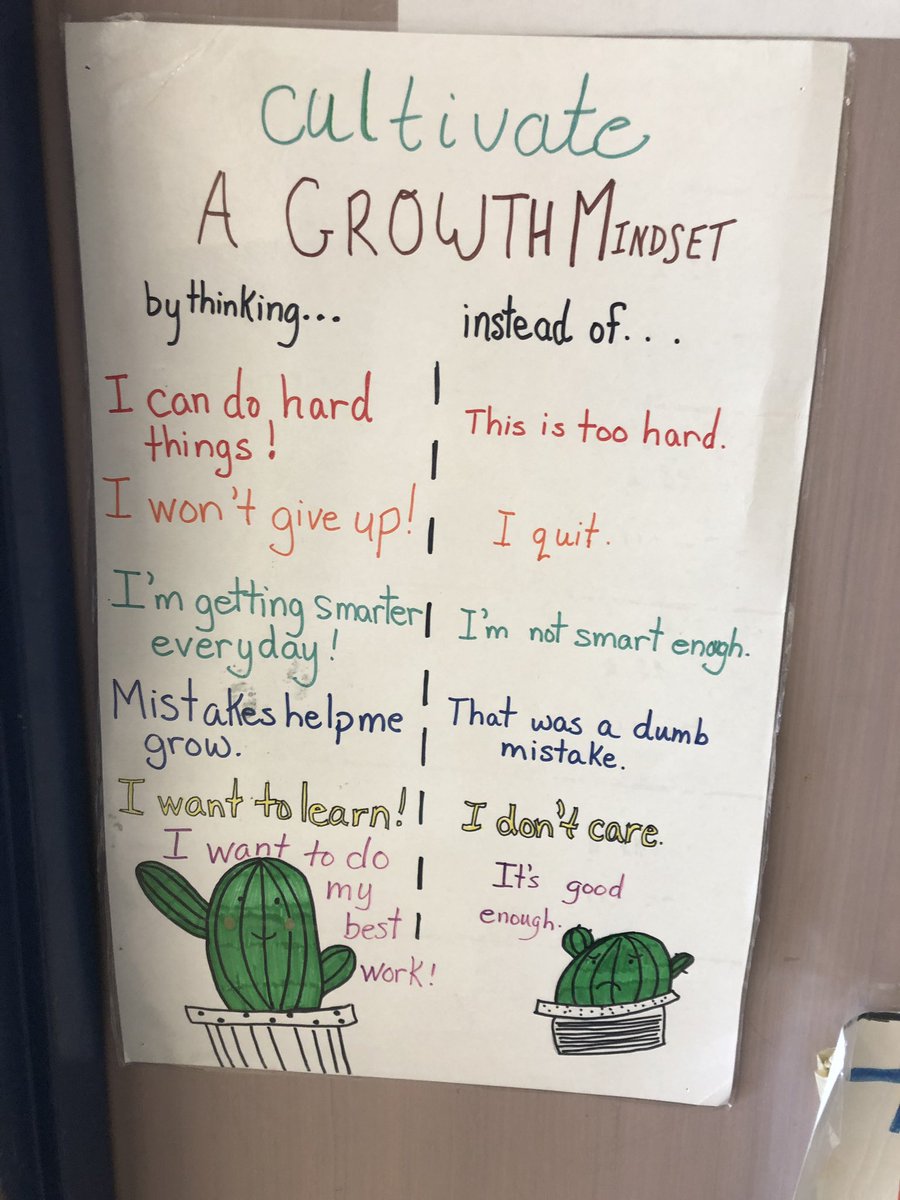 cultivate
A GROWTH MINDSET
by thinking...
instead of...
I can do hard
things!
This is too hard.
I won't give up!
I quit.
I'm getting smarter
everyday!
I'm not smart enogh.
Mistakes help me
grow.
That was a dumb
mistake.
I want to learn!
I don't care.
I want to do
my
best
work!
It's good
enough.